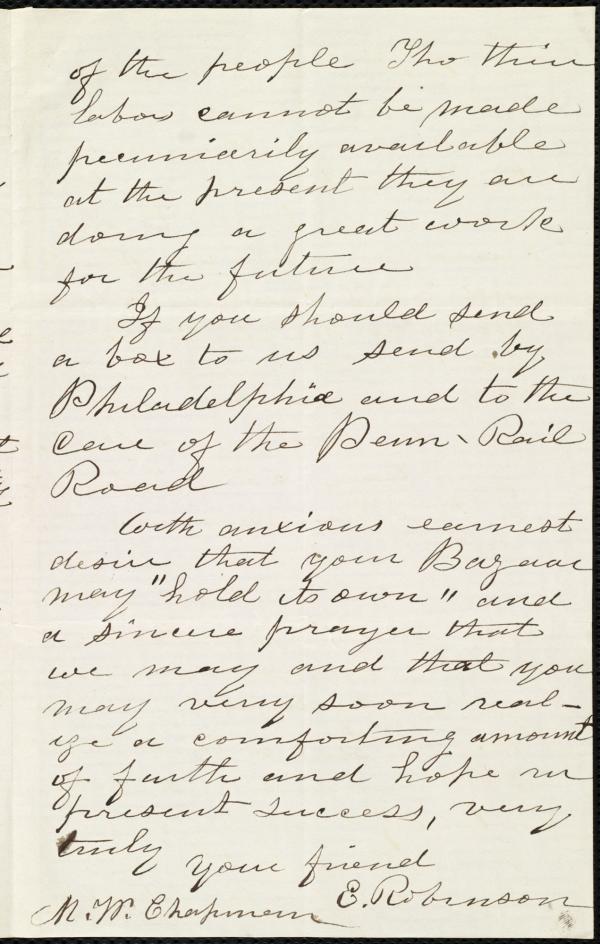 of the people Tho their
labors cannot be made
pecuniarily available
at the present they are
doing a great work
for the future
If you should send
a box to us send by
Philadelphia and to the
care of the Penn- Rail
Road
With anxious earnest
desire that your Bazaar
may "hold its own" and
a sincere prayer that
we may and that you
may very soon real-
ize a comforting amount
of faith and hope in
present success, very
truly
your friend
E. Robinson
M. W. Chapman